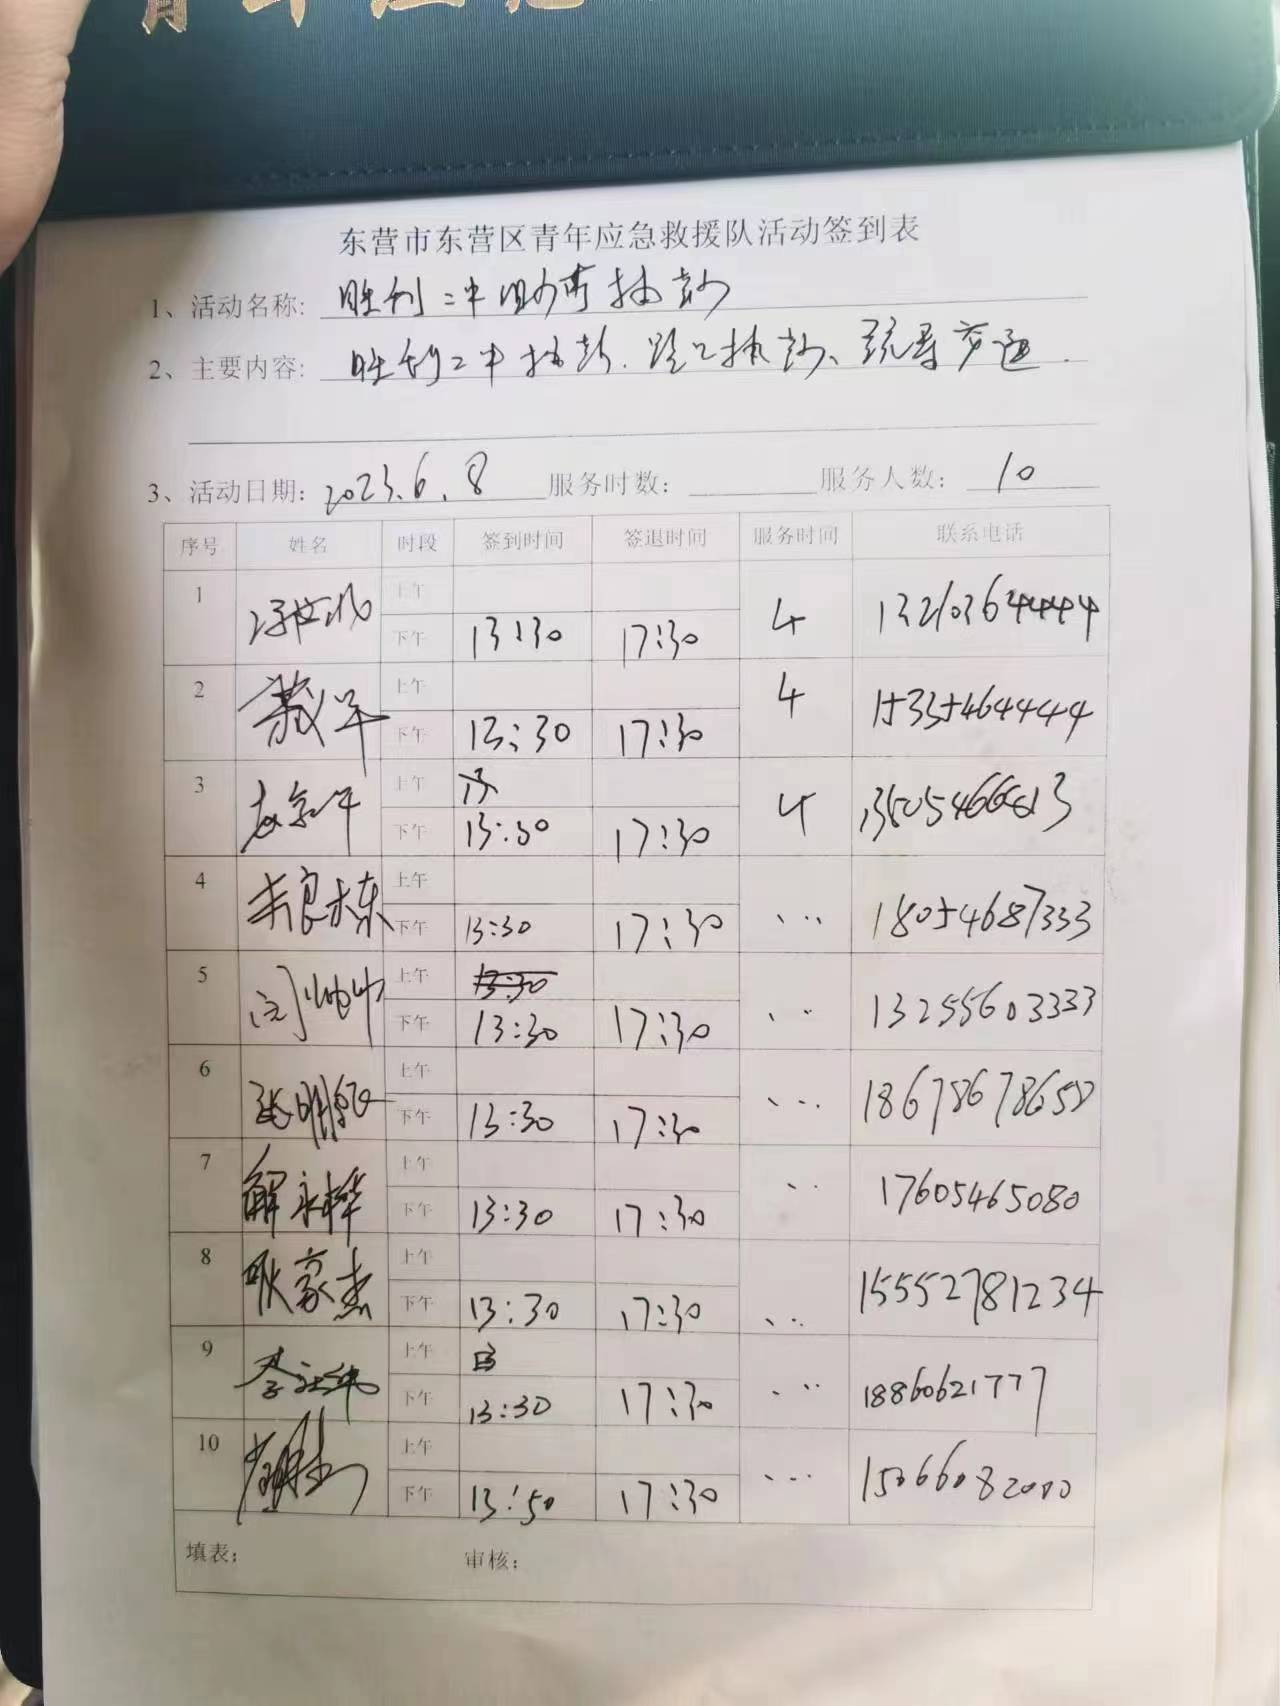 青年应急
东营市东营区青年应急救援队活动签到表
1、活动名称: 胜利二中助考执勤
2、主要内容: 胜利二中执勤、路口执勤、疏导交通.
3、活动日期: 2023.6.8 服务时数: 服务人数: 10
序号 姓名 时段 签到时间 签退时间 服务时间 联系电话
1 上午
下午 13:30 17:30 4 13210364444
2 上午
下午 13:30 17:30 4 15335464444
3 上午
下午 13:30 17:30 4
4 上午
下午 13:30 17:30 ... 18054687333
5 上午 13:30
下午 13:30 17:30 .. 13255603333
6 上午
下午 13:30 17:30 ...
7 解永桦 上午
下午 13:30 17:30 .. 17605465080
8 耿豪杰 上午
下午 13:30 17:30 ... 15552781234
9 上午
下午 13:30 17:30 ... 18860621777
10 上午
下午 13:50 17:30 ... 15066082000
填表: 审核: